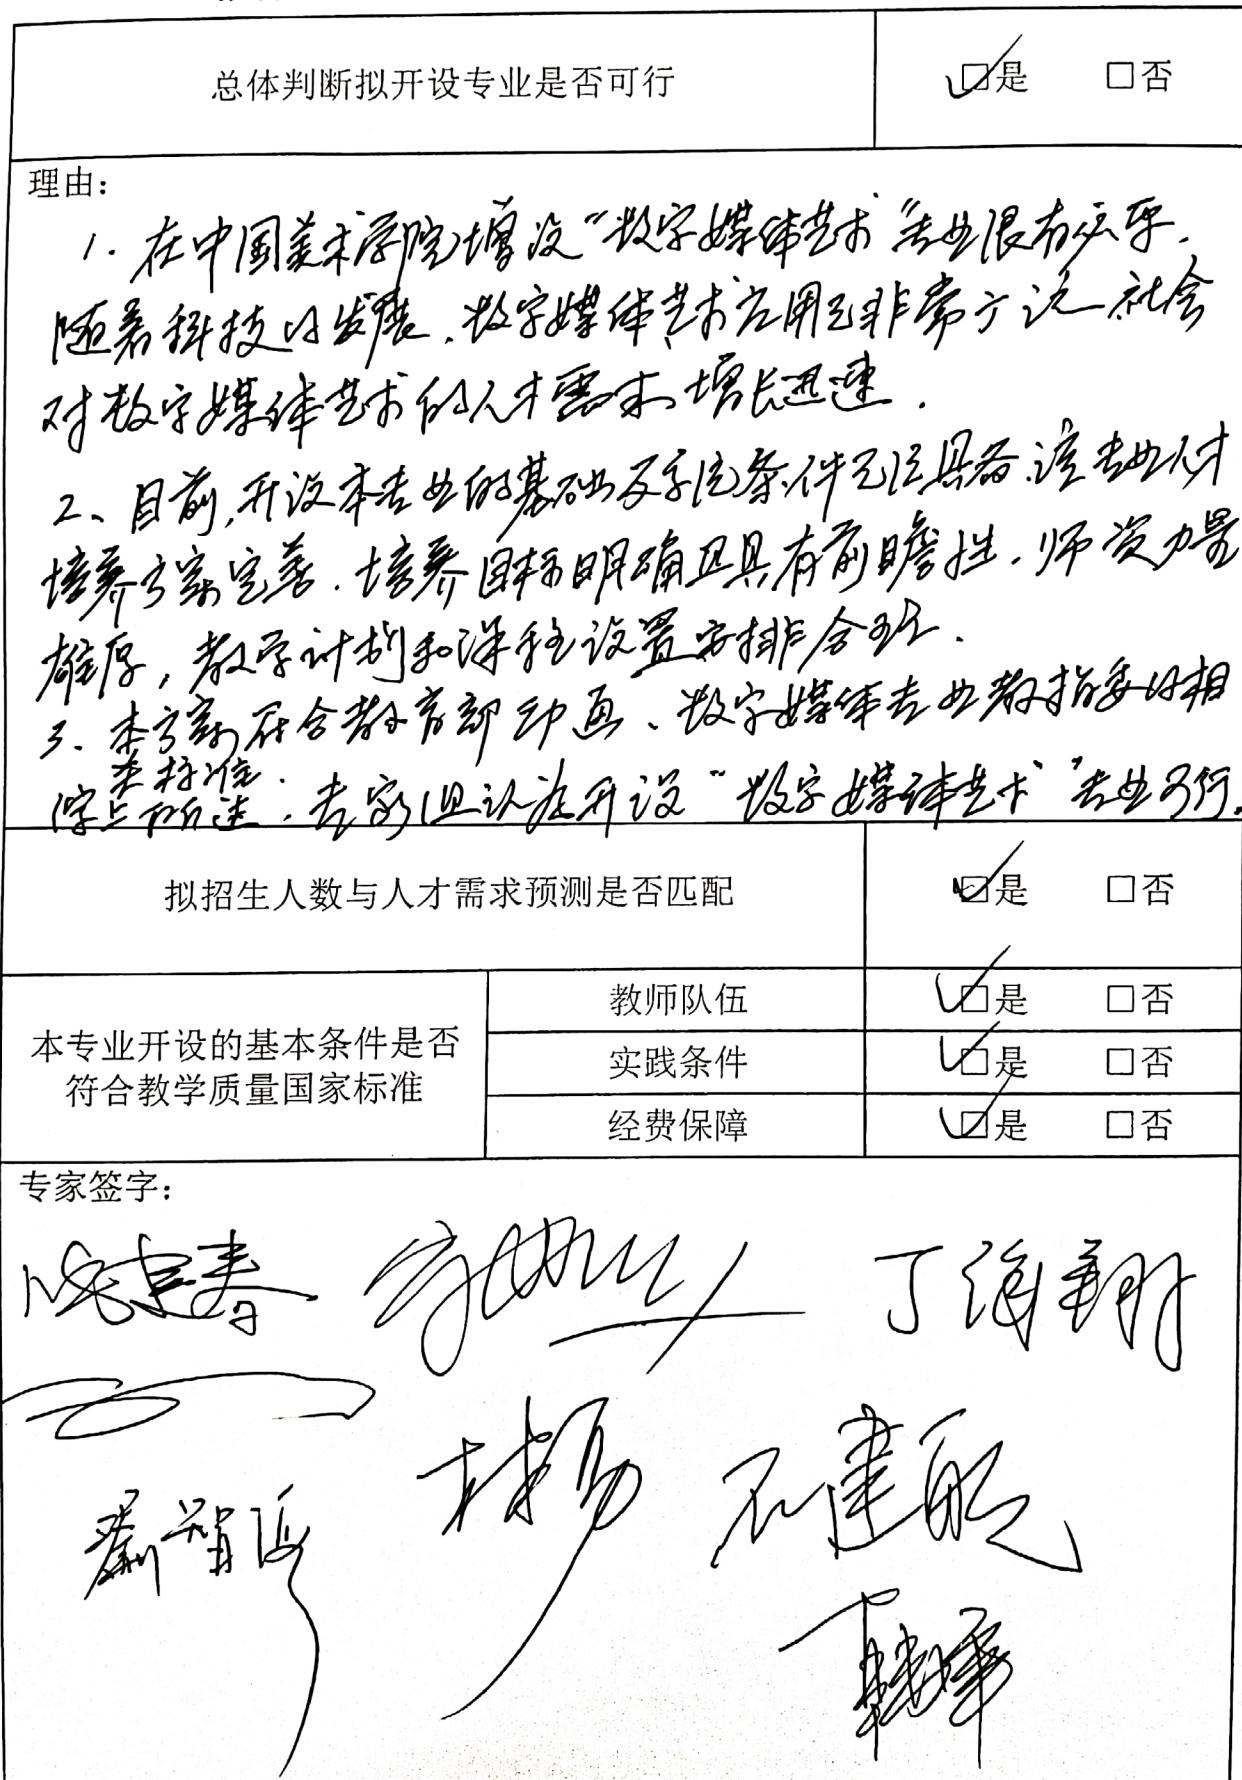 总体判断拟开设专业是否可行 ☑是 □否
理由：
1. 在中国美术学院增设“数字媒体艺术”专业很有必要.
随着科技的发展，数字媒体艺术应用已非常广泛 社会
对数字媒体艺术的人才需求增长迅速.
2、目前，开设本专业的基础及条件已经具备.该专业人才
培养方案完善.培养目标明确且具有前瞻性.师资力量
雄厚，教学计划和课程设置安排合理.
3、本方案符合教育部、数字媒体专业教指委的相
关标准.
综上所述.专家组认为开设“数字媒体艺术”专业可行。
拟招生人数与人才需求预测是否匹配 ☑是 □否
本专业开设的基本条件是否
符合教学质量国家标准
教师队伍 ☑是 □否
实践条件 ☑是 □否
经费保障 ☑是 □否
专家签字：
林扬 石建航